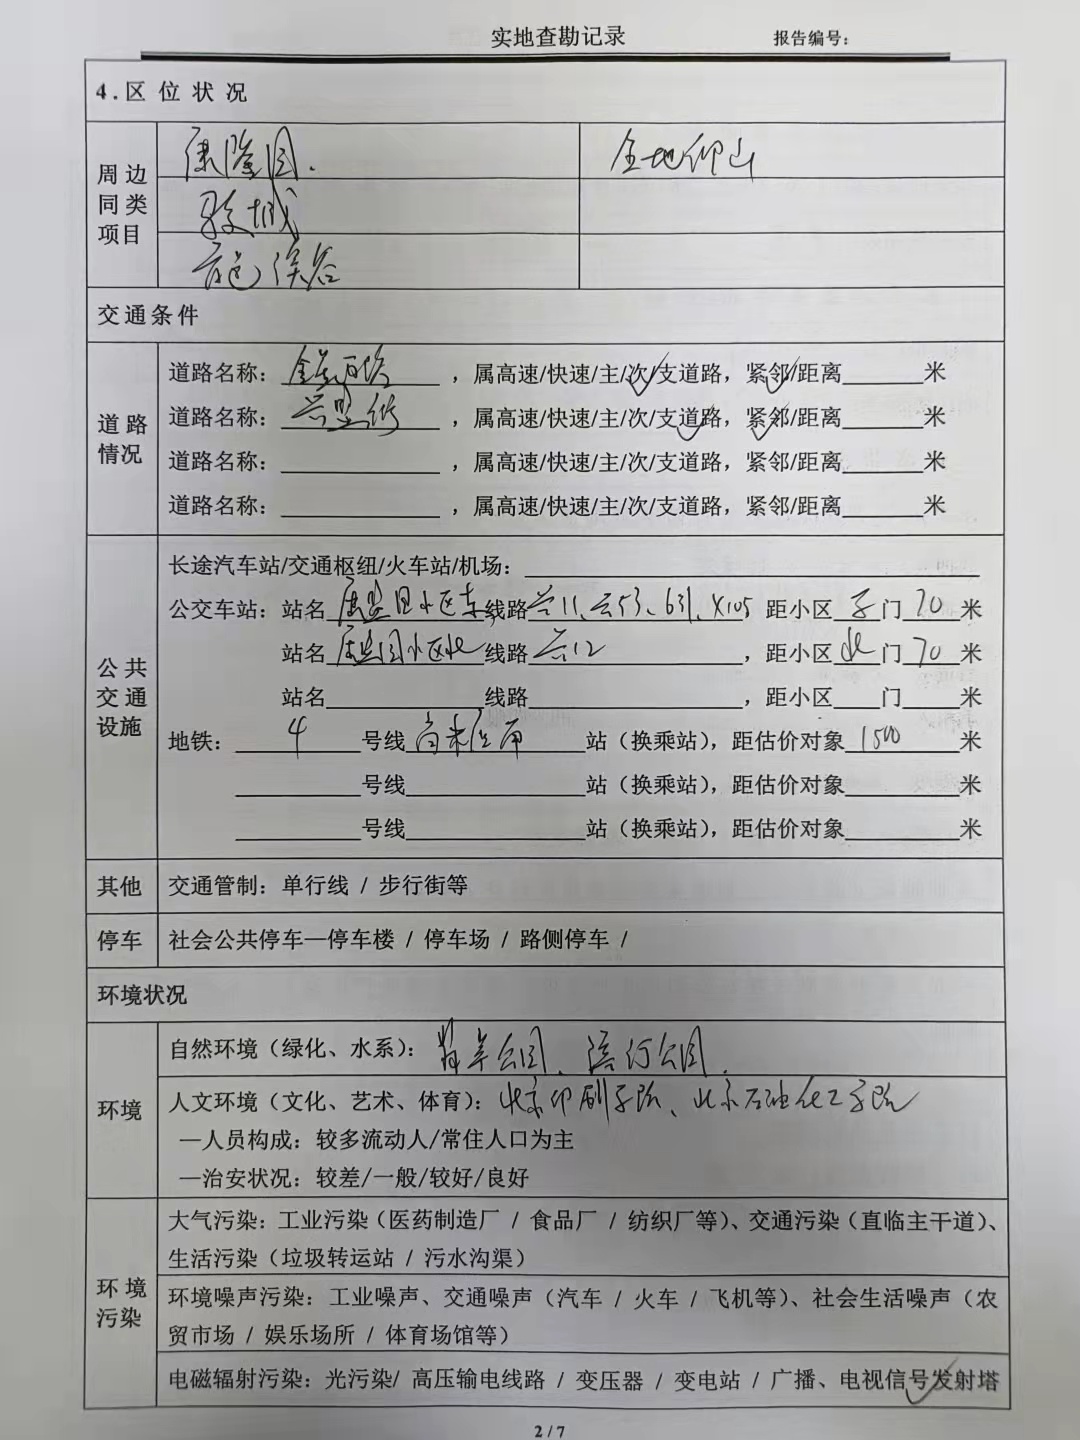 实地查勘记录 报告编号：
4.区位状况
周边同类项目
康隆园. 金地仰山
交通条件
道路情况
道路名称： ，属高速/快速/主/次/支道路，紧邻/距离 米
道路名称： ，属高速/快速/主/次/支道路，紧邻/距离 米
道路名称： ，属高速/快速/主/次/支道路，紧邻/距离 米
道路名称： ，属高速/快速/主/次/支道路，紧邻/距离 米
公共交通设施
长途汽车站/交通枢纽/火车站/机场：
公交车站：站名 线路兴11、兴53、631、X105，距小区 门70米
站名 线路兴12，距小区北门70米
站名 线路 ，距小区 门 米
地铁：4号线高米店南站（换乘站），距估价对象1500米
号线 站（换乘站），距估价对象 米
号线 站（换乘站），距估价对象 米
其他 交通管制：单行线 / 步行街等
停车 社会公共停车—停车楼 / 停车场 / 路侧停车 /
环境状况
环境
自然环境（绿化、水系）： 公园、 公园.
人文环境（文化、艺术、体育）：北京印刷学院、北京石油化工学院
—人员构成：较多流动人/常住人口为主
—治安状况：较差/一般/较好/良好
环境污染
大气污染：工业污染（医药制造厂 / 食品厂 / 纺织厂等）、交通污染（直临主干道）、
生活污染（垃圾转运站 / 污水沟渠）
环境噪声污染：工业噪声、交通噪声（汽车 / 火车 / 飞机等）、社会生活噪声（农
贸市场 / 娱乐场所 / 体育场馆等）
电磁辐射污染：光污染/ 高压输电线路 / 变压器 / 变电站 / 广播、电视信号发射塔
2/7